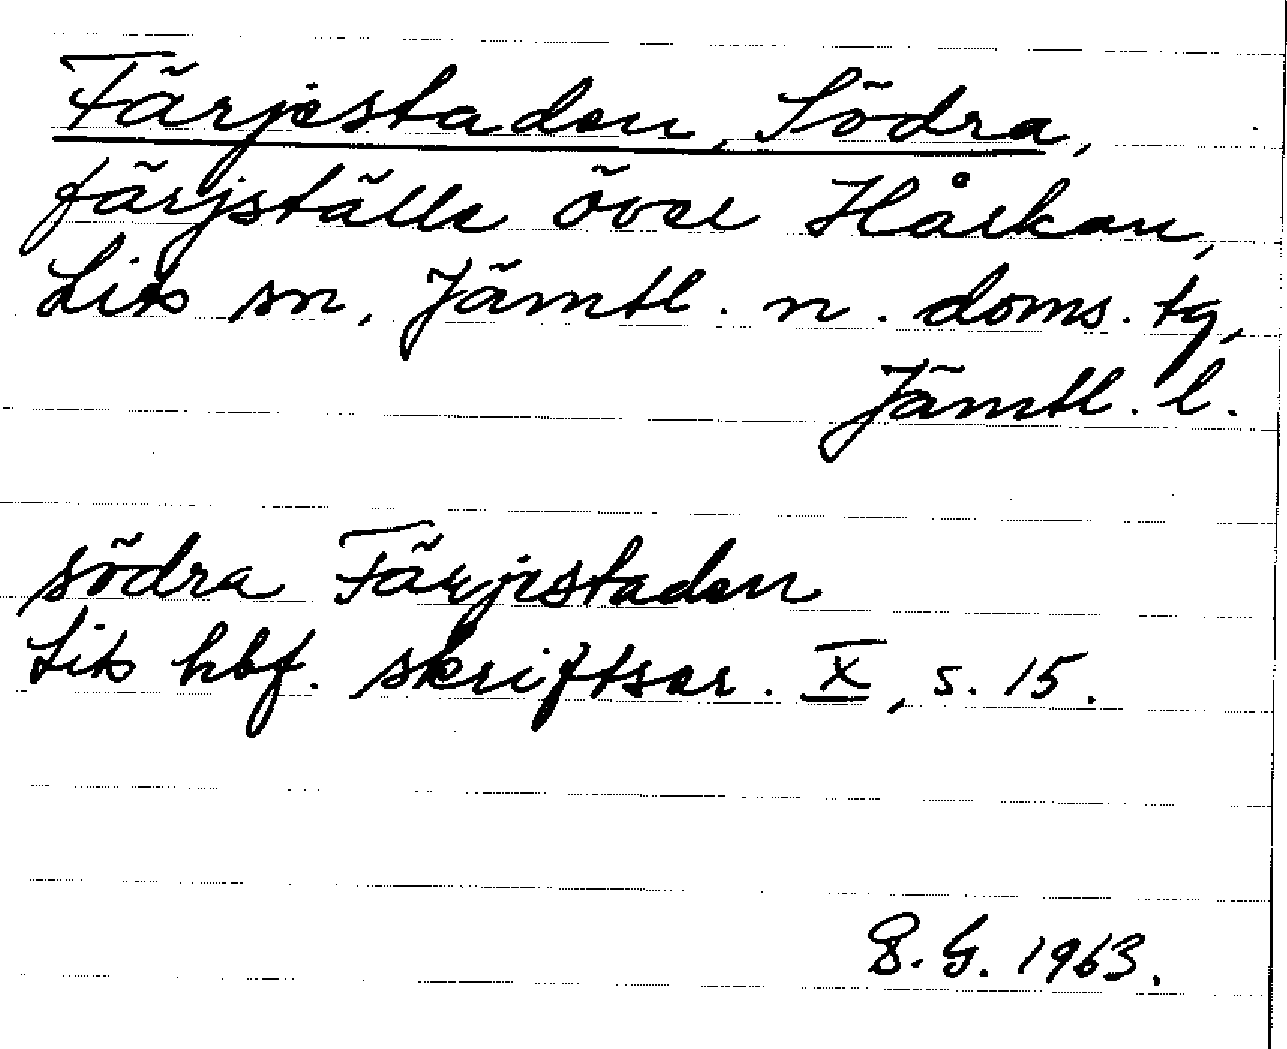 Färjestaden, Södra,
färjställe över Hårkan,
Lits sn, Jämtl. n. doms. tg,
Jämtl. l.
södra Färjestaden
Lits hbf. skriftser. X, s. 15.
B. G. 1963.